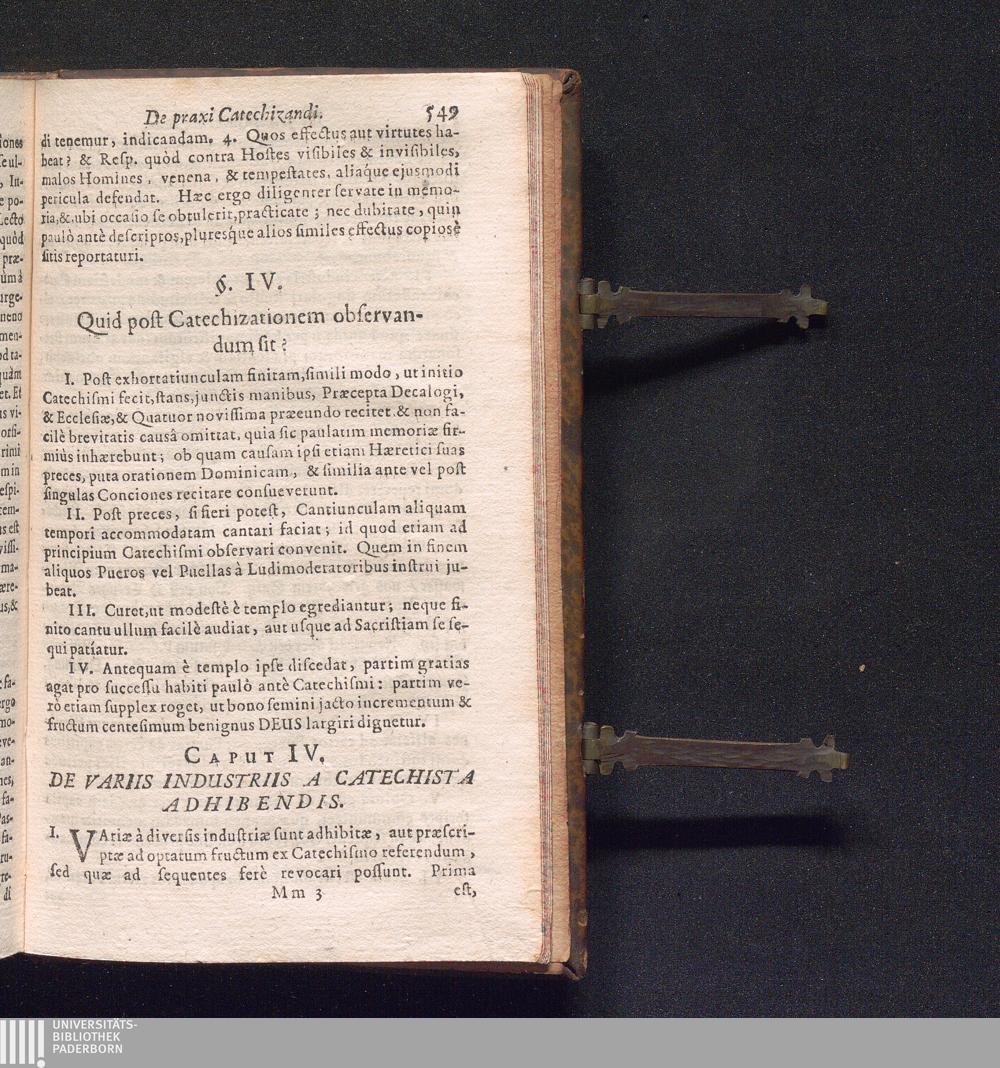 De praxi Catechizandi. 549
di tenemur, indicandam. 4. Quos effectus aut virtutes ha-
beat? & Resp. quòd contra Hostes visibiles & invisibiles,
malos Homines, venena, & tempestates, aliaque ejusmodi
pericula defendat. Hæc ergo diligenter servate in memo-
ria, & ubi occasio se obtulerit, practicate; nec dubitate, quin
paulò antè descriptos, pluresque alios similes effectus copiosè
sitis reportaturi.
§. IV.
Quid post Catechizationem observan-
dum sit?
I. Post exhortatiunculam finitam, simili modo, ut initio
Catechismi fecit, stans, junctis manibus, Præcepta Decalogi,
& Ecclesiæ, & Quatuor novissima præeundo recitet & non fa-
cilè brevitatis causâ omittat, quia sic paulatim memoriæ fir-
miùs inhærebunt; ob quam causam ipsi etiam Hæretici suas
preces, puta orationem Dominicam, & similia ante vel post
singulas Conciones recitare consueverunt.
II. Post preces, si fieri potest, Cantiunculam aliquam
tempori accommodatam cantari faciat; id quod etiam ad
principium Catechismi observari convenit. Quem in finem
aliquos Pueros vel Puellas à Ludimoderatoribus instrui ju-
beat.
III. Curet, ut modestè è templo egrediantur; neque fi-
nito cantu ullum facilè audiat, aut usque ad Sacristiam se se-
qui patiatur.
IV. Antequam è templo ipse discedat, partim gratias
agat pro successu habiti paulò antè Catechismi: partim ve-
rò etiam supplex roget, ut bono semini jacto incrementum &
fructum centesimum benignus DEUS largiri dignetur.
CAPUT IV.
DE VARIIS INDUSTRIIS A CATECHISTA
ADHIBENDIS.
I. VAriæ à diversis industriæ sunt adhibitæ, aut præscri-
ptæ ad optatum fructum ex Catechismo referendum,
sed quæ ad sequentes ferè revocari possunt. Prima
Mm 3 est,
UNIVERSITÄTS-
BIBLIOTHEK
PADERBORN